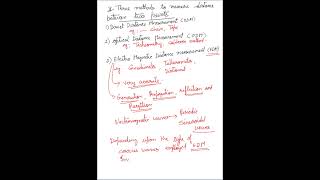 Three methods to measure distance
between two points
1) Direct Distance Measurement (DDM)
eg: — chain, Tape
2) Optical Distance Measurement (ODM)
eg: Tacheometry,
3) Electro Magnetic Distance measurement (EDM)
eg Geodimeter, Tellurometer,
Distomat
→ Very accurate
→ Generation, Propagation, reflection and
Reception
Electromagnetic waves → Periodic
Sinusoidal
waves
Depending upon the type of
carrier waves employed EDM